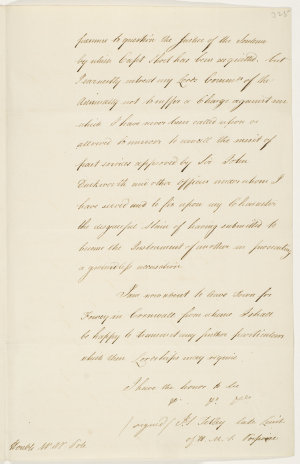 325
presume to question the Justice of the Sentence
by which Capt Foot has been acquitted, but
I earnestly intreat my Lords Commrs of the
Admiralty not to suffer a Charge against me
which I have never been called upon or
allowed to answer to cancel the merit of
past services approved by Sir John
Duckworth and other officers under whom I
have served and to fix upon my Character
the disgraceful Stain of having submitted to
become the Instrument of another in prosecuting
a groundless accusation.
I am now about to leave Town for
Fowey in Cornwall from whence I shall
be happy to transmit any further particulars
which their Lordships may require.
I have the honor to be
(signed) late Lieut
of H. M. S.
Honble W. W. Pole